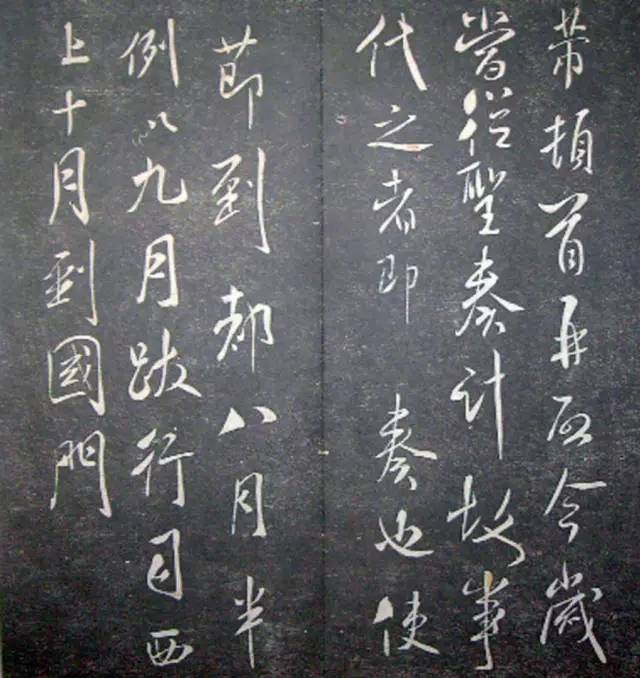 芾頓首再启今歲
當聖奏計故事
代之者即 奏也使
節到都八月半
例以九月跋行自西
上十月到國門